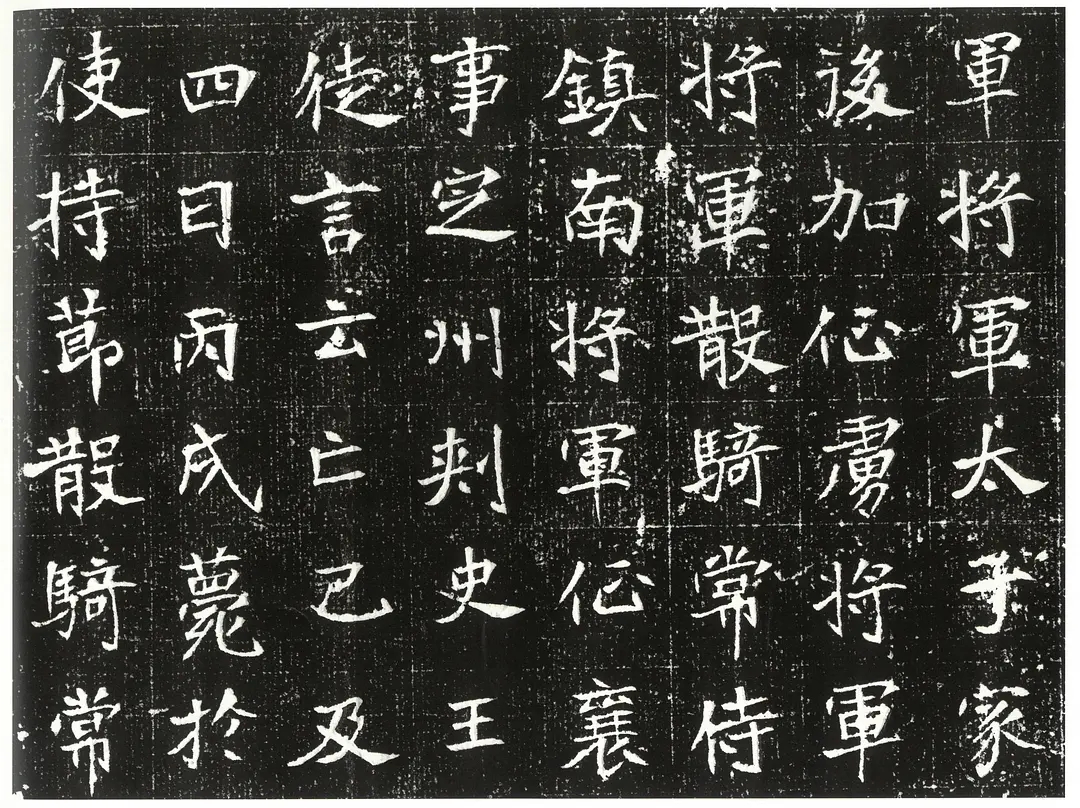 軍將軍太子家
後加征虜將軍
將軍散騎常侍
鎮南將軍征襄
事定州刺史王
徒言云亡已及
四日丙戌薨於
使持節散騎常